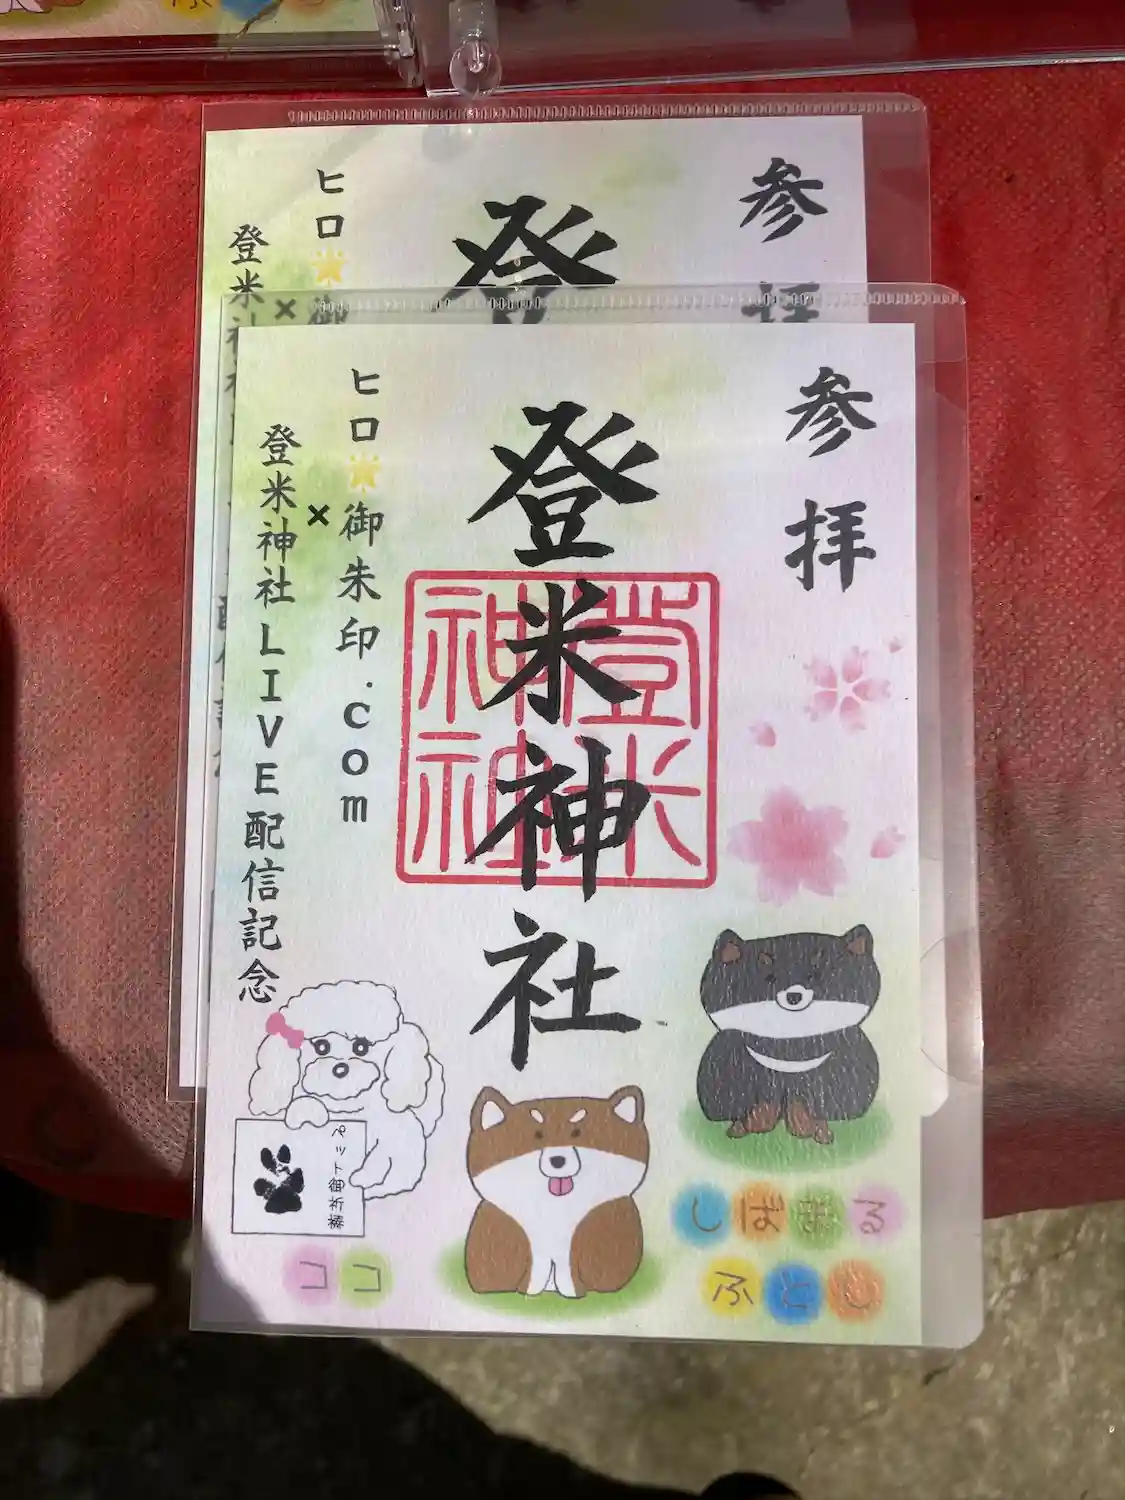 参拝
登米神社
登米神社
ヒロ☀御朱印.com
×
登米神社LIVE配信記念
ペット御祈祷
ココ
しばまる
ふとし
参拝
登
ヒロ☀御
×
登米神
ふ